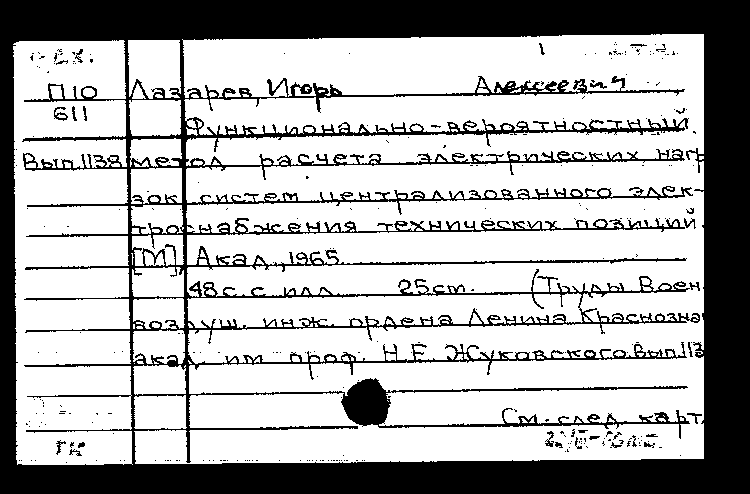 1
П10 Лазарев, Игорь Алексеевич
611
Функционально-вероятностный
Вып.1138 метод расчета электрических нагр
зок систем централизованного элек-
троснабжения технических позиций.
[М], Акад., 1965.
48 с. с илл. 25 см. (Труды Воен.
воздуш. инж. ордена Ленина Краснозна
акад. им проф. Н.Е. Жуковского. Вып.113
См. след. карт.